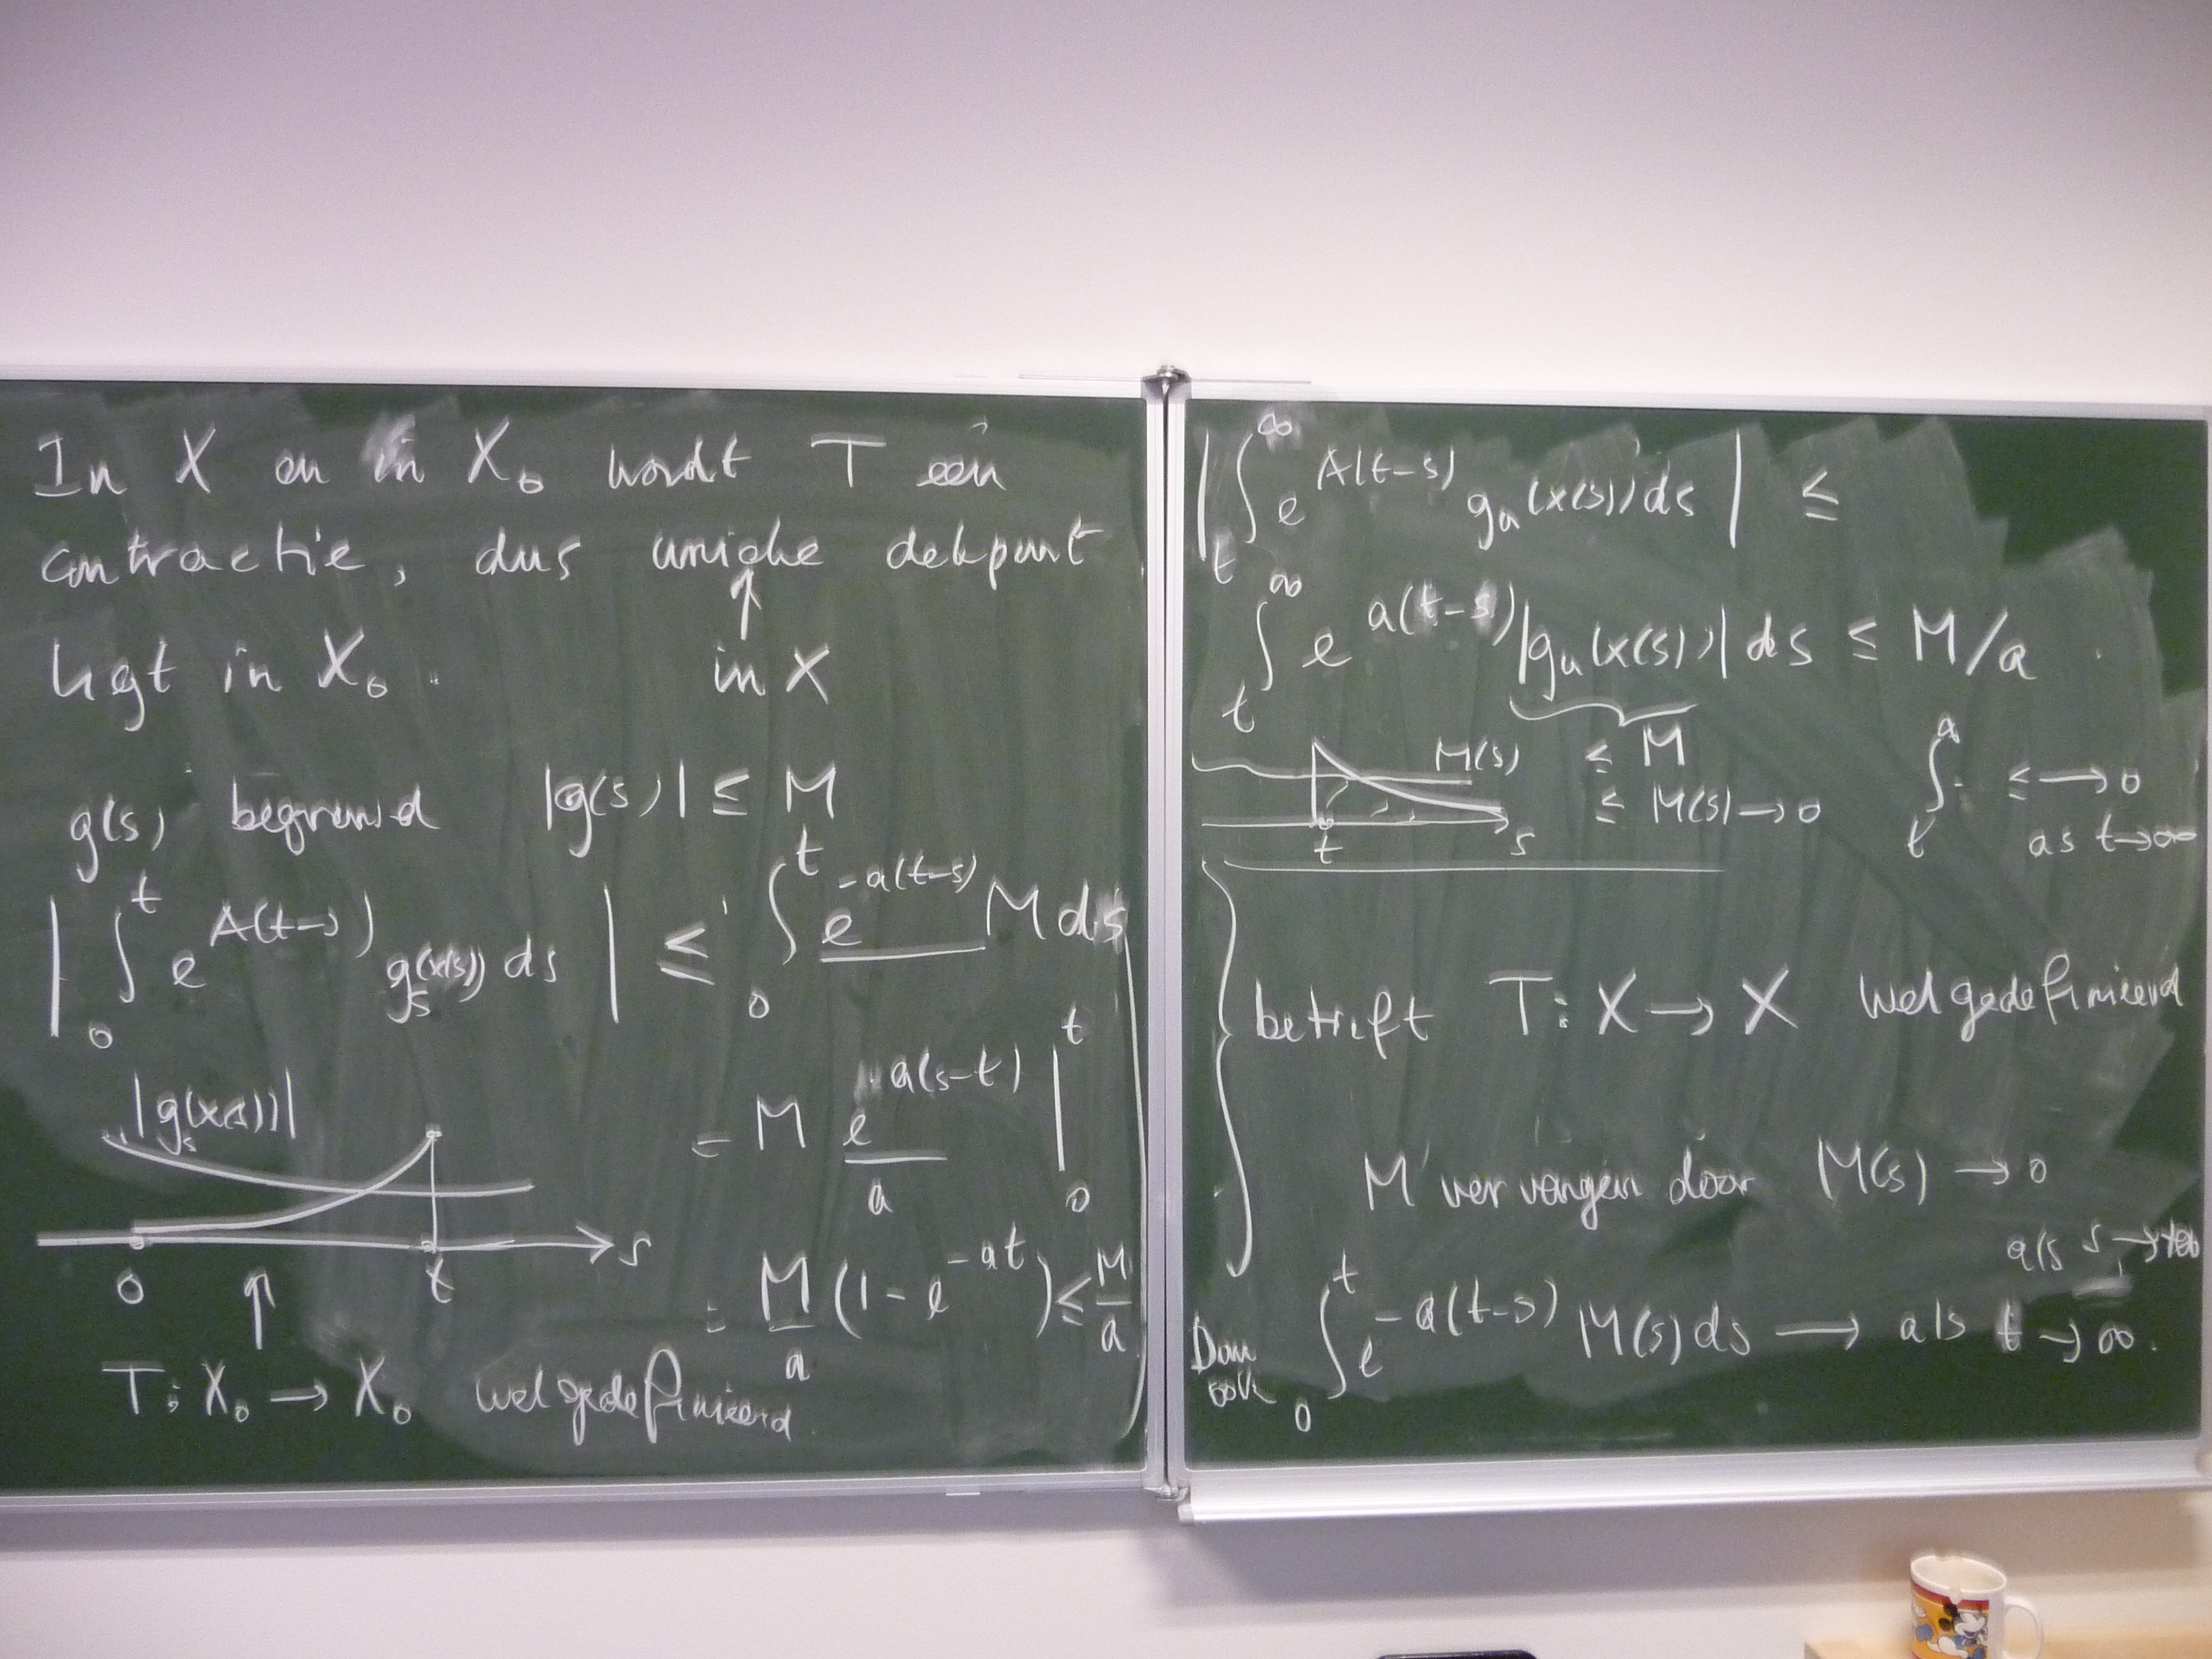 In X en in X₀ wordt T een
contractie, dus unieke dekpunt
ligt in X₀. in X
g(s) begrensd |g(s)| ≤ M
| ∫₀ᵗ e^{A(t-s)} gₛ(x(s)) ds | ≤ ∫₀ᵗ e^{-a(t-s)} M ds
|gₛ(x(s))|
= M e^{a(s-t)}/a |₀ᵗ
0 t s
= M/a (1 - e^{-at}) ≤ M/a
T: X₀ → X₀ welgedefinieerd
| ∫ₜ^∞ e^{A(t-s)} gᵤ(x(s)) ds | ≤
∫ₜ^∞ e^{a(t-s)} |gᵤ(x(s))| ds ≤ M/a
M(s) ≤ M
≤ M(s) → 0 ∫ₜ^∞ ≤ → 0
t s as t → ∞
betreft T: X → X welgedefinieerd
M vervangen door M(s) → 0
als s →
Dan ook ∫₀ᵗ e^{-a(t-s)} M(s) ds → als t → ∞.